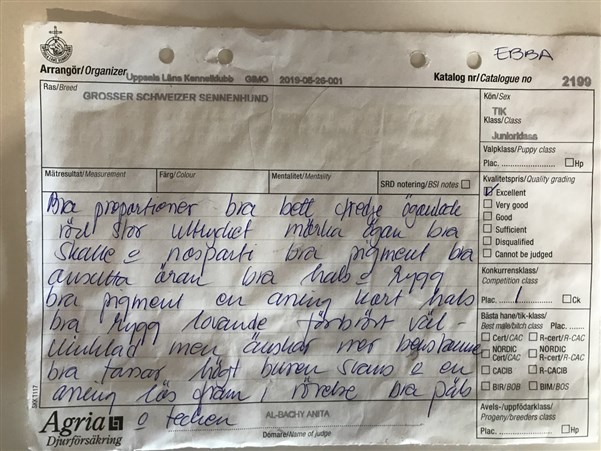 EBBA
Arrangör/Organizer Uppsala Läns Kennelklubb GIMO 2019-05-25-001
Katalog nr/Catalogue no 2199
Ras/Breed GROSSER SCHWEIZER SENNENHUND
Kön/Sex
TIK
Klass/Class
Juniorklass
Valpklass/Puppy class
Plac. Hp
Mätresultat/Measurement Färg/Colour Mentalitet/Mentality SRD notering/BSI notes
Kvalitetspris/Quality grading
Excellent
Very good
Good
Sufficient
Disqualified
Cannot be judged
Konkurrensklass/
Competition class
Plac. 1 Ck
Bästa hane/tik-klass/
Best male/bitch class Plac.
Cert/CAC R-cert/R-CAC
NORDIC Cert/CAC NORDIC R-cert/R-CAC
CACIB R-CACIB
BIR/BOB BIM/BOS
Avels-/uppfödarklass/
Progeny/breeders class
Plac. Hp
Bra proportioner bra bett tredje ögonlock
röd stor uttrycket mörka ögon bra
skalle o nosparti bra pigment bra
ansatta öron bra hals o rygg
bra pigment en aning kort hals
bra rygg lovande förbröst väl-
vinklad men önskar mer benstomme
bra tassar högt buren svans o en
aning lös fram i rörelse bra päls
o tecken
SKK1117
Agria
Djurförsäkring
AL-BACHY ANITA
Domare/Name of judge